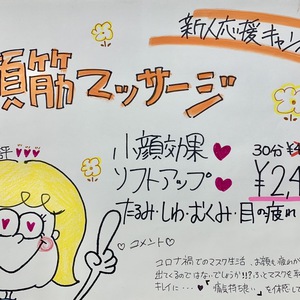 新人応援キャン
顔筋マッサージ
評
小顔効果
30分
ソフトアップ
¥2,4
たるみ・しわ・むくみ・目の疲れ
コメント
コロナ禍でのマスク生活、お顔も疲れが
出てくるのではないでしょうか!?ふとマスクを
キレイに…「痛気持ち良い」を体感して